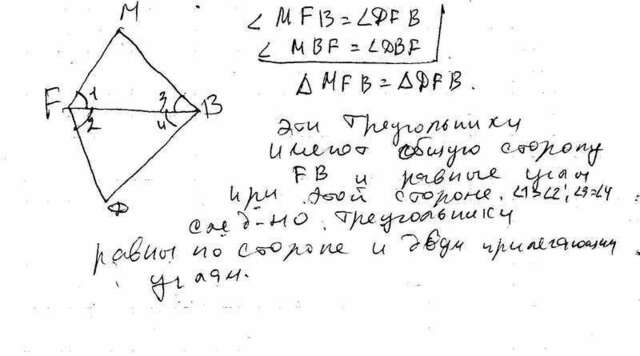 M
F 1 3 B
2 4
Ф
∠ MFB = ∠DFB
∠ MBF = ∠DBF
Δ MFB = Δ DFB.
Эти треугольники
имеют общую сторону
FB и равные углы
при этой стороне. ∠1=∠2; ∠3=∠4
след-но треугольники
равны по стороне и двум прилегающим
углам.